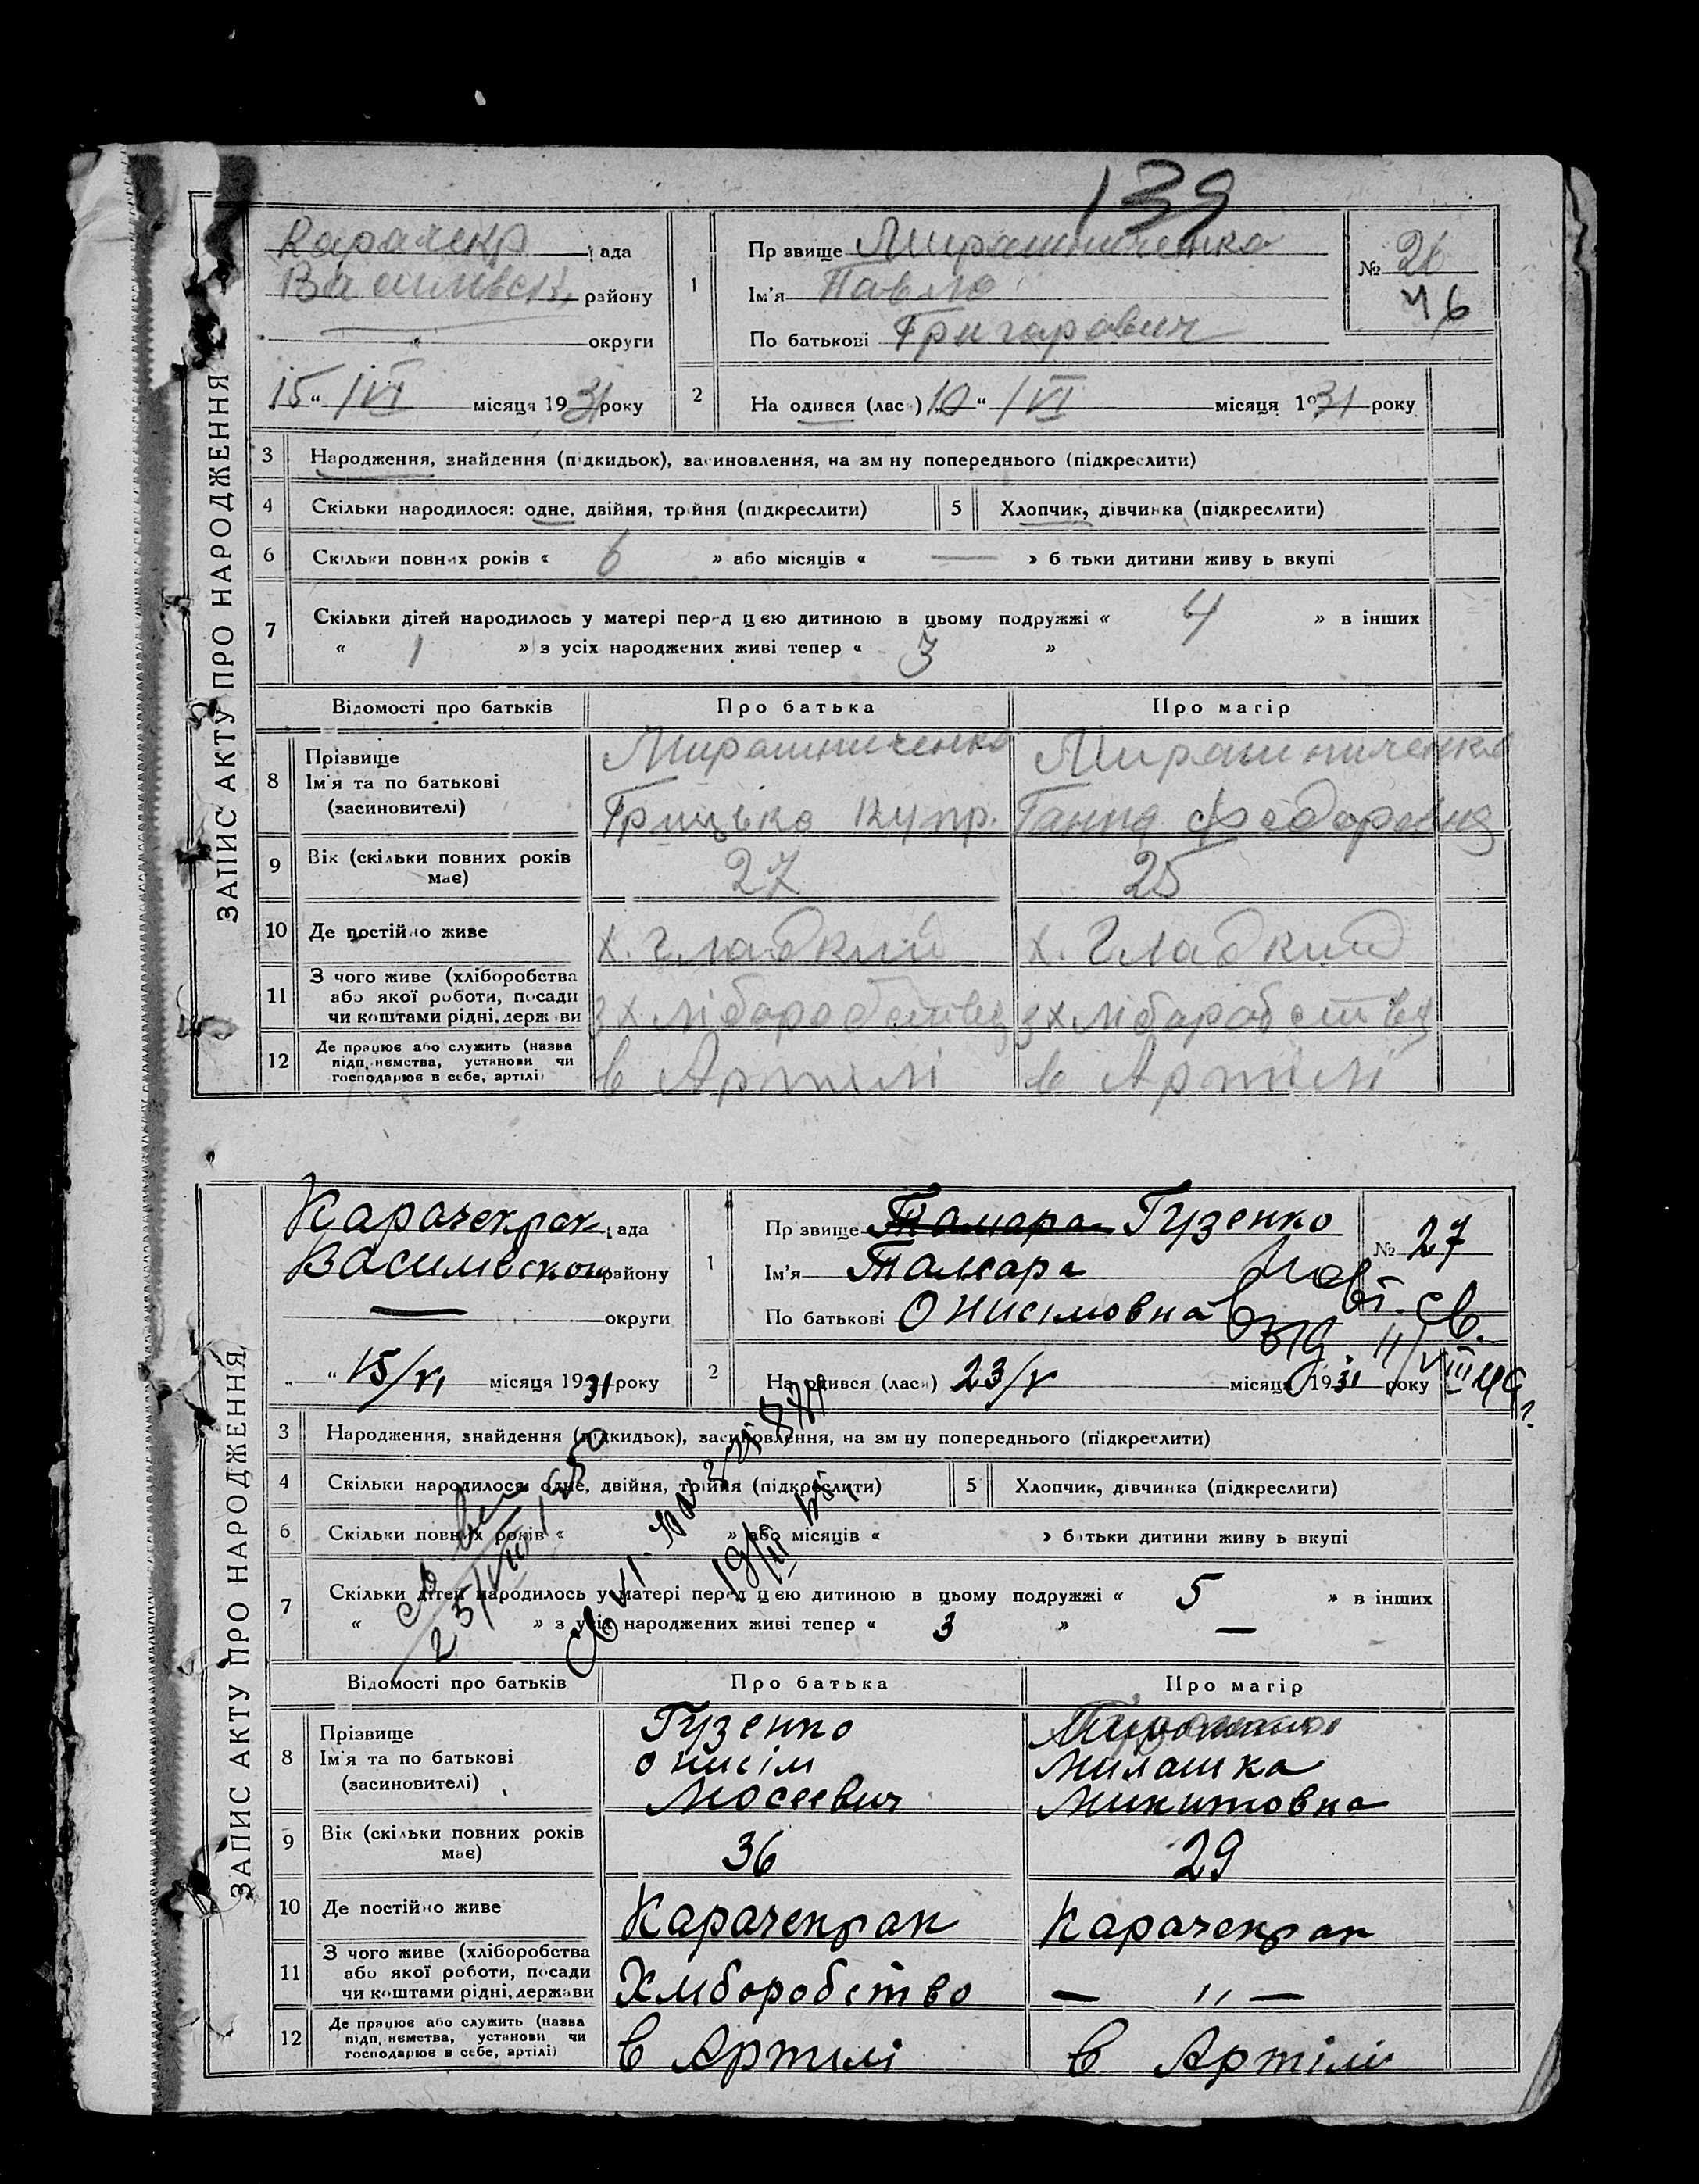 139
ЗАПИС АКТУ ПРО НАРОДЖЕННЯ
Карачекр рада
Васильвськ. району
— округи
15 " / VI місяця 1931 року
1 Пр звище Мирашниченко
Ім'я Павло
По батькові Григорович
№ 26
46
2 На одився (лась) 10 " / VI місяця 1931 року
3 Народження, знайдення (підкидьок), засиновлення, на зм ну попереднього (підкреслити)
4 Скільки народилося: одне, двійня, трійня (підкреслити) 5 Хлопчик, дівчинка (підкреслити)
6 Скільки повних років « 6 » або місяців « — » б тьки дитини живу ь вкупі
7 Скільки дітей народилось у матері перед цією дитиною в цьому подружжі « 4 » в інших
« 1 » з усіх народжених живі тепер « 3 »
Відомості про батьків Про батька Про матір
8 Прізвище Мирашниченко Мирашниченко
Ім'я та по батькові
(засиновителі) Грицько Купр. Ганна Федоровна
9 Вік (скільки повних років має) 27 25
10 Де постійно живе х. Гладкий х. Гладкий
11 З чого живе (хліборобства
або якої роботи, посади
чи коштами рідні, держ ви з хліборобства з хліборобства
12 Де працює або служить (назва
підп. ємства, установи чи
господарює в себе, артілі) в Артилі в Артілі
ЗАПИС АКТУ ПРО НАРОДЖЕННЯ
Карачекрак рада
Василівском району
— округи
" " 15/VI місяця 1931 року
1 Пр звище Тамара Гузенко
Ім'я Тамара
По батькові Онисімовна
№ 27
Пов
св.
11/VIII 49 г.
2 На одився (лась) 23/V місяця 1931 року
3 Народження, знайдення (підкидьок), засиновлення, на зм ну попереднього (підкреслити)
4 Скільки народилося: одне, двійня, трійня (підкреслити) 5 Хлопчик, дівчинка (підкреслити)
6 Скільки повних років « » або місяців « » батьки дитини живу ь вкупі
23/VIII 1950
19/III
7 Скільки дітей народилось у матері перед цією дитиною в цьому подружжі « 5 » в інших
« » з усіх народжених живі тепер « 3 » —
Відомості про батьків Про батька Про матір
8 Прізвище Гузенко
Ім'я та по батькові Онисім Милашка
(засиновителі) Мосеевич Микитовна
9 Вік (скільки повних років має) 36 29
10 Де постійно живе Карачекрак Карачекрак
11 З чого живе (хліборобства
або якої роботи, посади
чи коштами рідні, держави Хліборобство — " —
12 Де працює або служить (назва
підп. ємства, установи чи
господарює в себе, артілі) в Артилі в Артілі